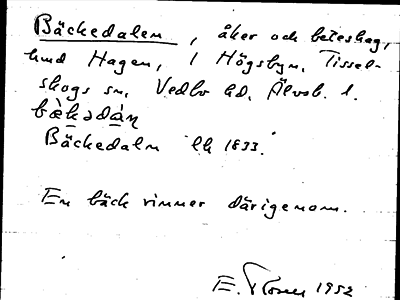 Bäckedalen, åker och beteshag,
hmd Hagen, i Högsbyn, Tissel-
skogs sn, Vedbo hd, Älvsb. l.
bæ̀kədàn
Bäckedaln lh 1833.
En bäck rinner därigenom.
E. 1952